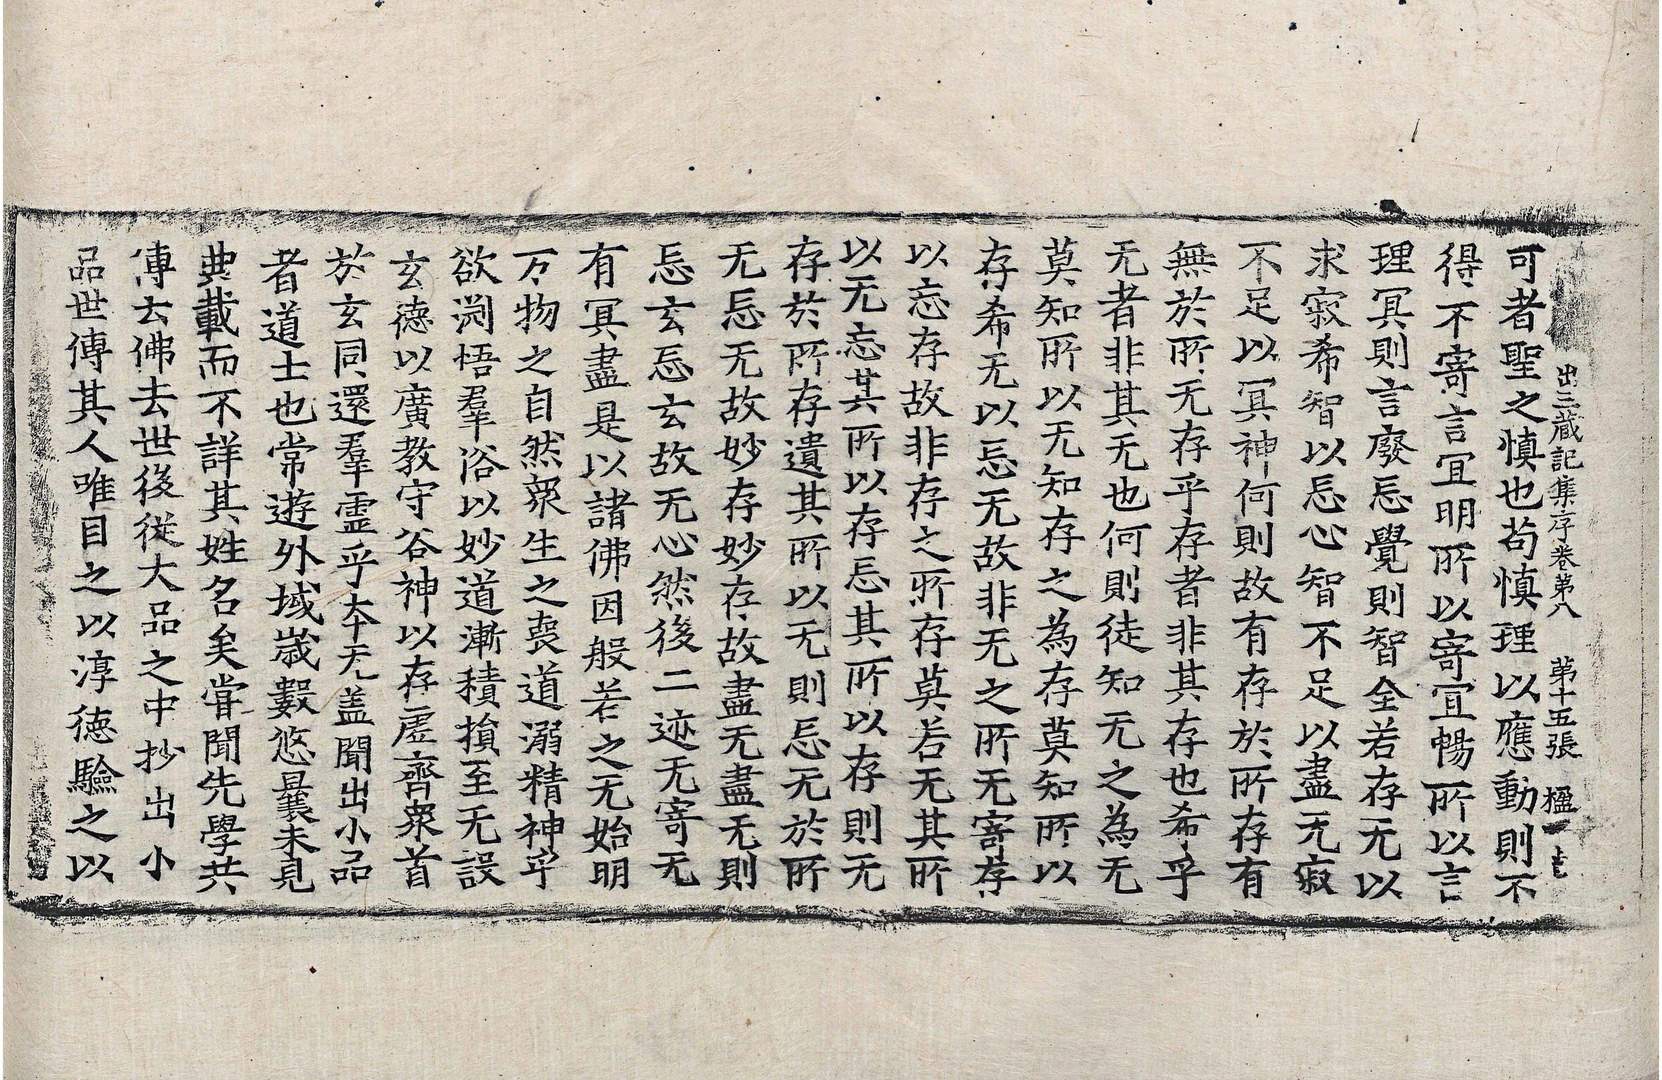 出三藏記集序卷第八　第十五張　楹
可者聖之慎也苟慎理以應動則不
得不寄言冝明所以寄冝暢所以言
理冥則言廢忘覺則智全若存无以
求寂希智以忘心智不足以盡无寂
不足以冥神何則故有存於所存有
無於所无存乎存者非其存也希乎
无者非其无也何則徒知无之為无
莫知所以无知存之為存莫知所以
存希无以忘无故非无之所无寄存
以忘存故非存之所存莫若无其所
以无忘其所以存忘其所以存則无
存於所存遺其所以无則忘无於所
无忘无故妙存妙存故盡无盡无則
忘玄忘玄故无心然後二迹无寄无
有冥盡是以諸佛因般若之无始明
万物之自然衆生之喪道溺精神乎
欲渕悟羣俗以妙道漸積損至无設
玄德以廣教守谷神以存虛齊衆首
於玄同還羣靈乎夲无盖聞出小品
者道士也常遊外域歲數悠曩未見
典載而不詳其姓名矣甞聞先學共
傳云佛去世後從大品之中抄出小
品世傳其人唯目之以淳德驗之以